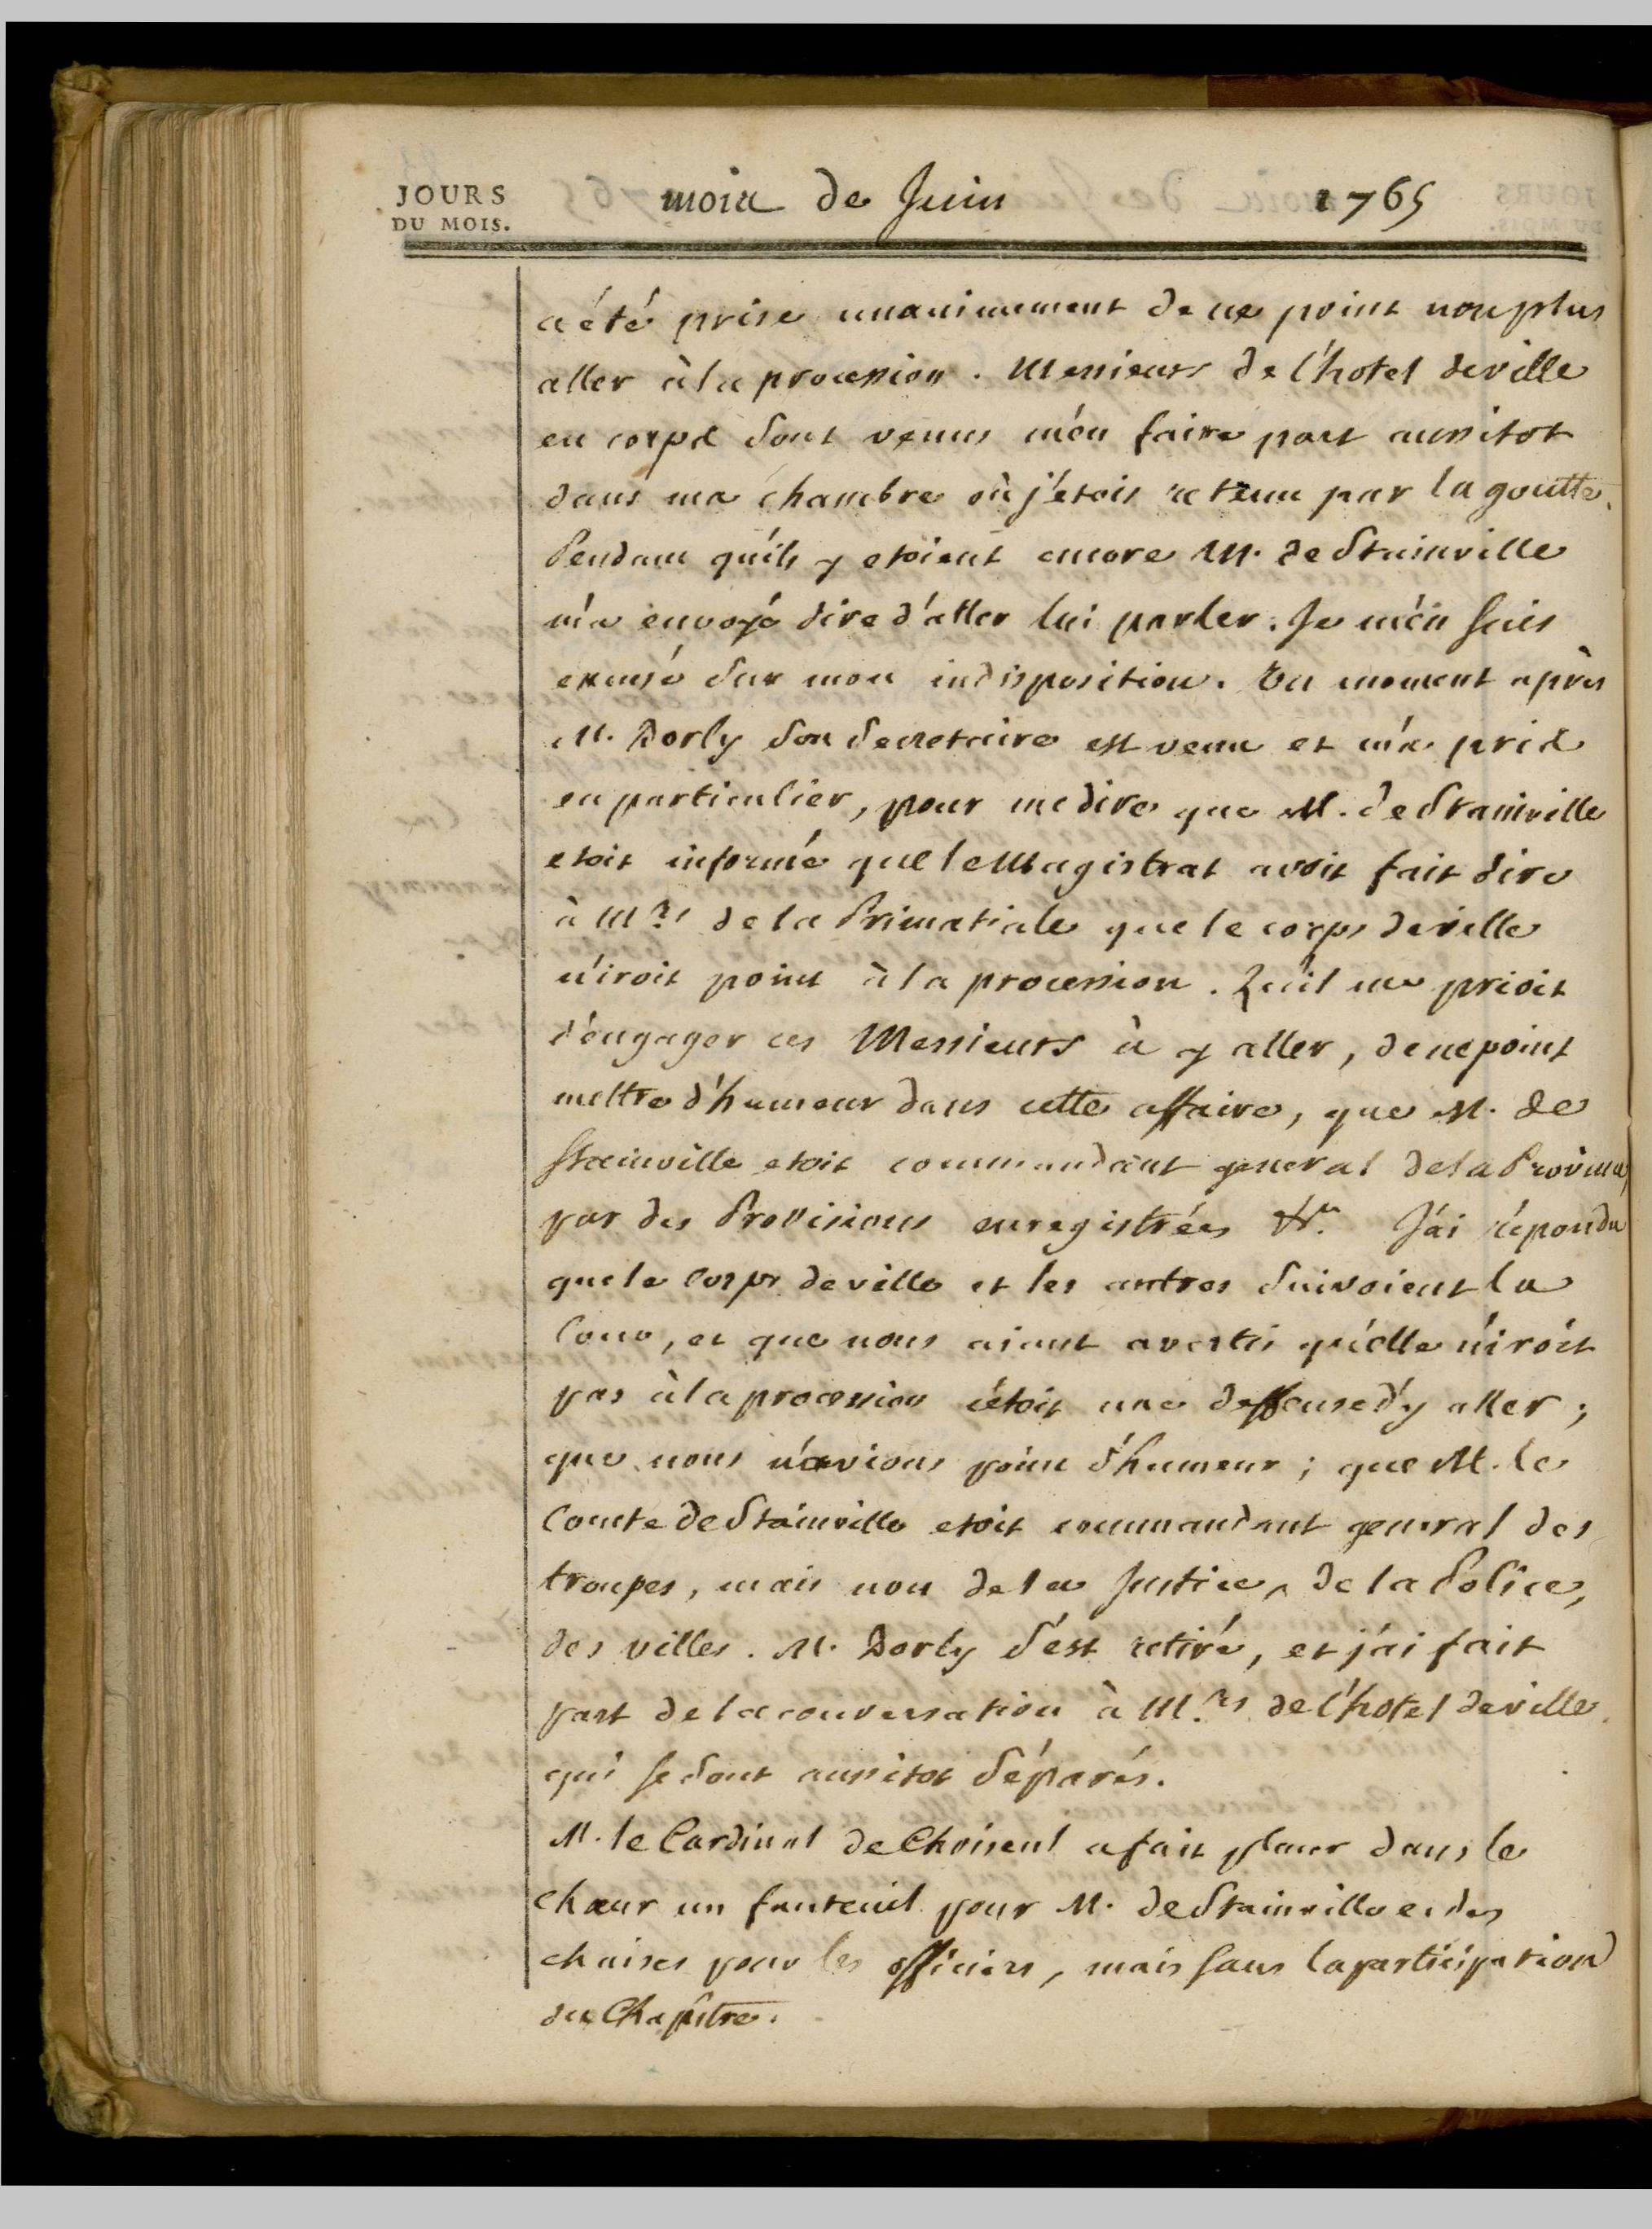 JOURS
DU MOIS.
mois de Juin 1765
a été prise unanimement de ne point non plus
aller à la procession. Messieurs de l'hotel de ville
en corps sont venus m'en faire part aussitot
dans ma chambre où j'étois retenu par la goutte.
Pendant qu'ils y etoient encore M. de Stainville
m'a envoyé dire d'aller lui parler. Je m'en suis
excusé sur mon indisposition. Un moment après
M. Dorly son Secretaire est venu et m'a pris
en particulier, pour me dire que M. de Stainville
etoit informé que le Magistrat avoit fait dire
à Mrs de la Primatiale que le corps de ville
n'iroit point à la procession. Qu'il me prioit
d'engager ces Messieurs à y aller, de ne point
mettre d'humeur dans cette affaire, que M. de
Stainville etoit commandant general de la Province,
par des Provisions enregistrées &a. J'ai répondu
que le Corps de ville et les autres suivoient la
Cour, et que nous aiant avertis qu'elle n'iroit
pas à la procession c'étoit une deffense d'y aller;
que nous n'avions point d'humeur; que M. le
Comte de Stainville etoit commandant general des
troupes, mais non de la Justice, de la Police,
des villes. M. Dorly s'est retiré, et j'ai fait
part de la conversation à Mrs de l'hotel de ville
qui se sont aussitot séparés.
M. le Cardinal de Choiseul a fait placer dans le
chœur un fauteuil pour M. de Stainville et des
chaises pour les officiers, mais sans la participation
du Chapitre.